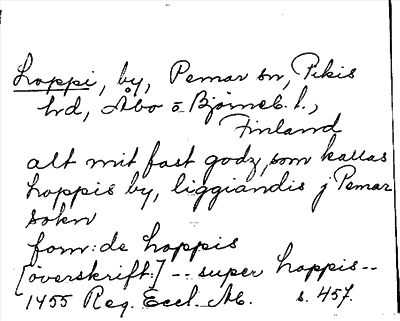 Loppi, by, Pemar sn, Pikis
hrd, Åbo o Björneb. l.,
Finland
alt mit fast godz, som kallas
Loppis by, liggiandis j Pemar
sokn
fom: de Loppis
[överskrift:] -- super Loppis --
1455 Reg. Eccl. Ab. s. 457.